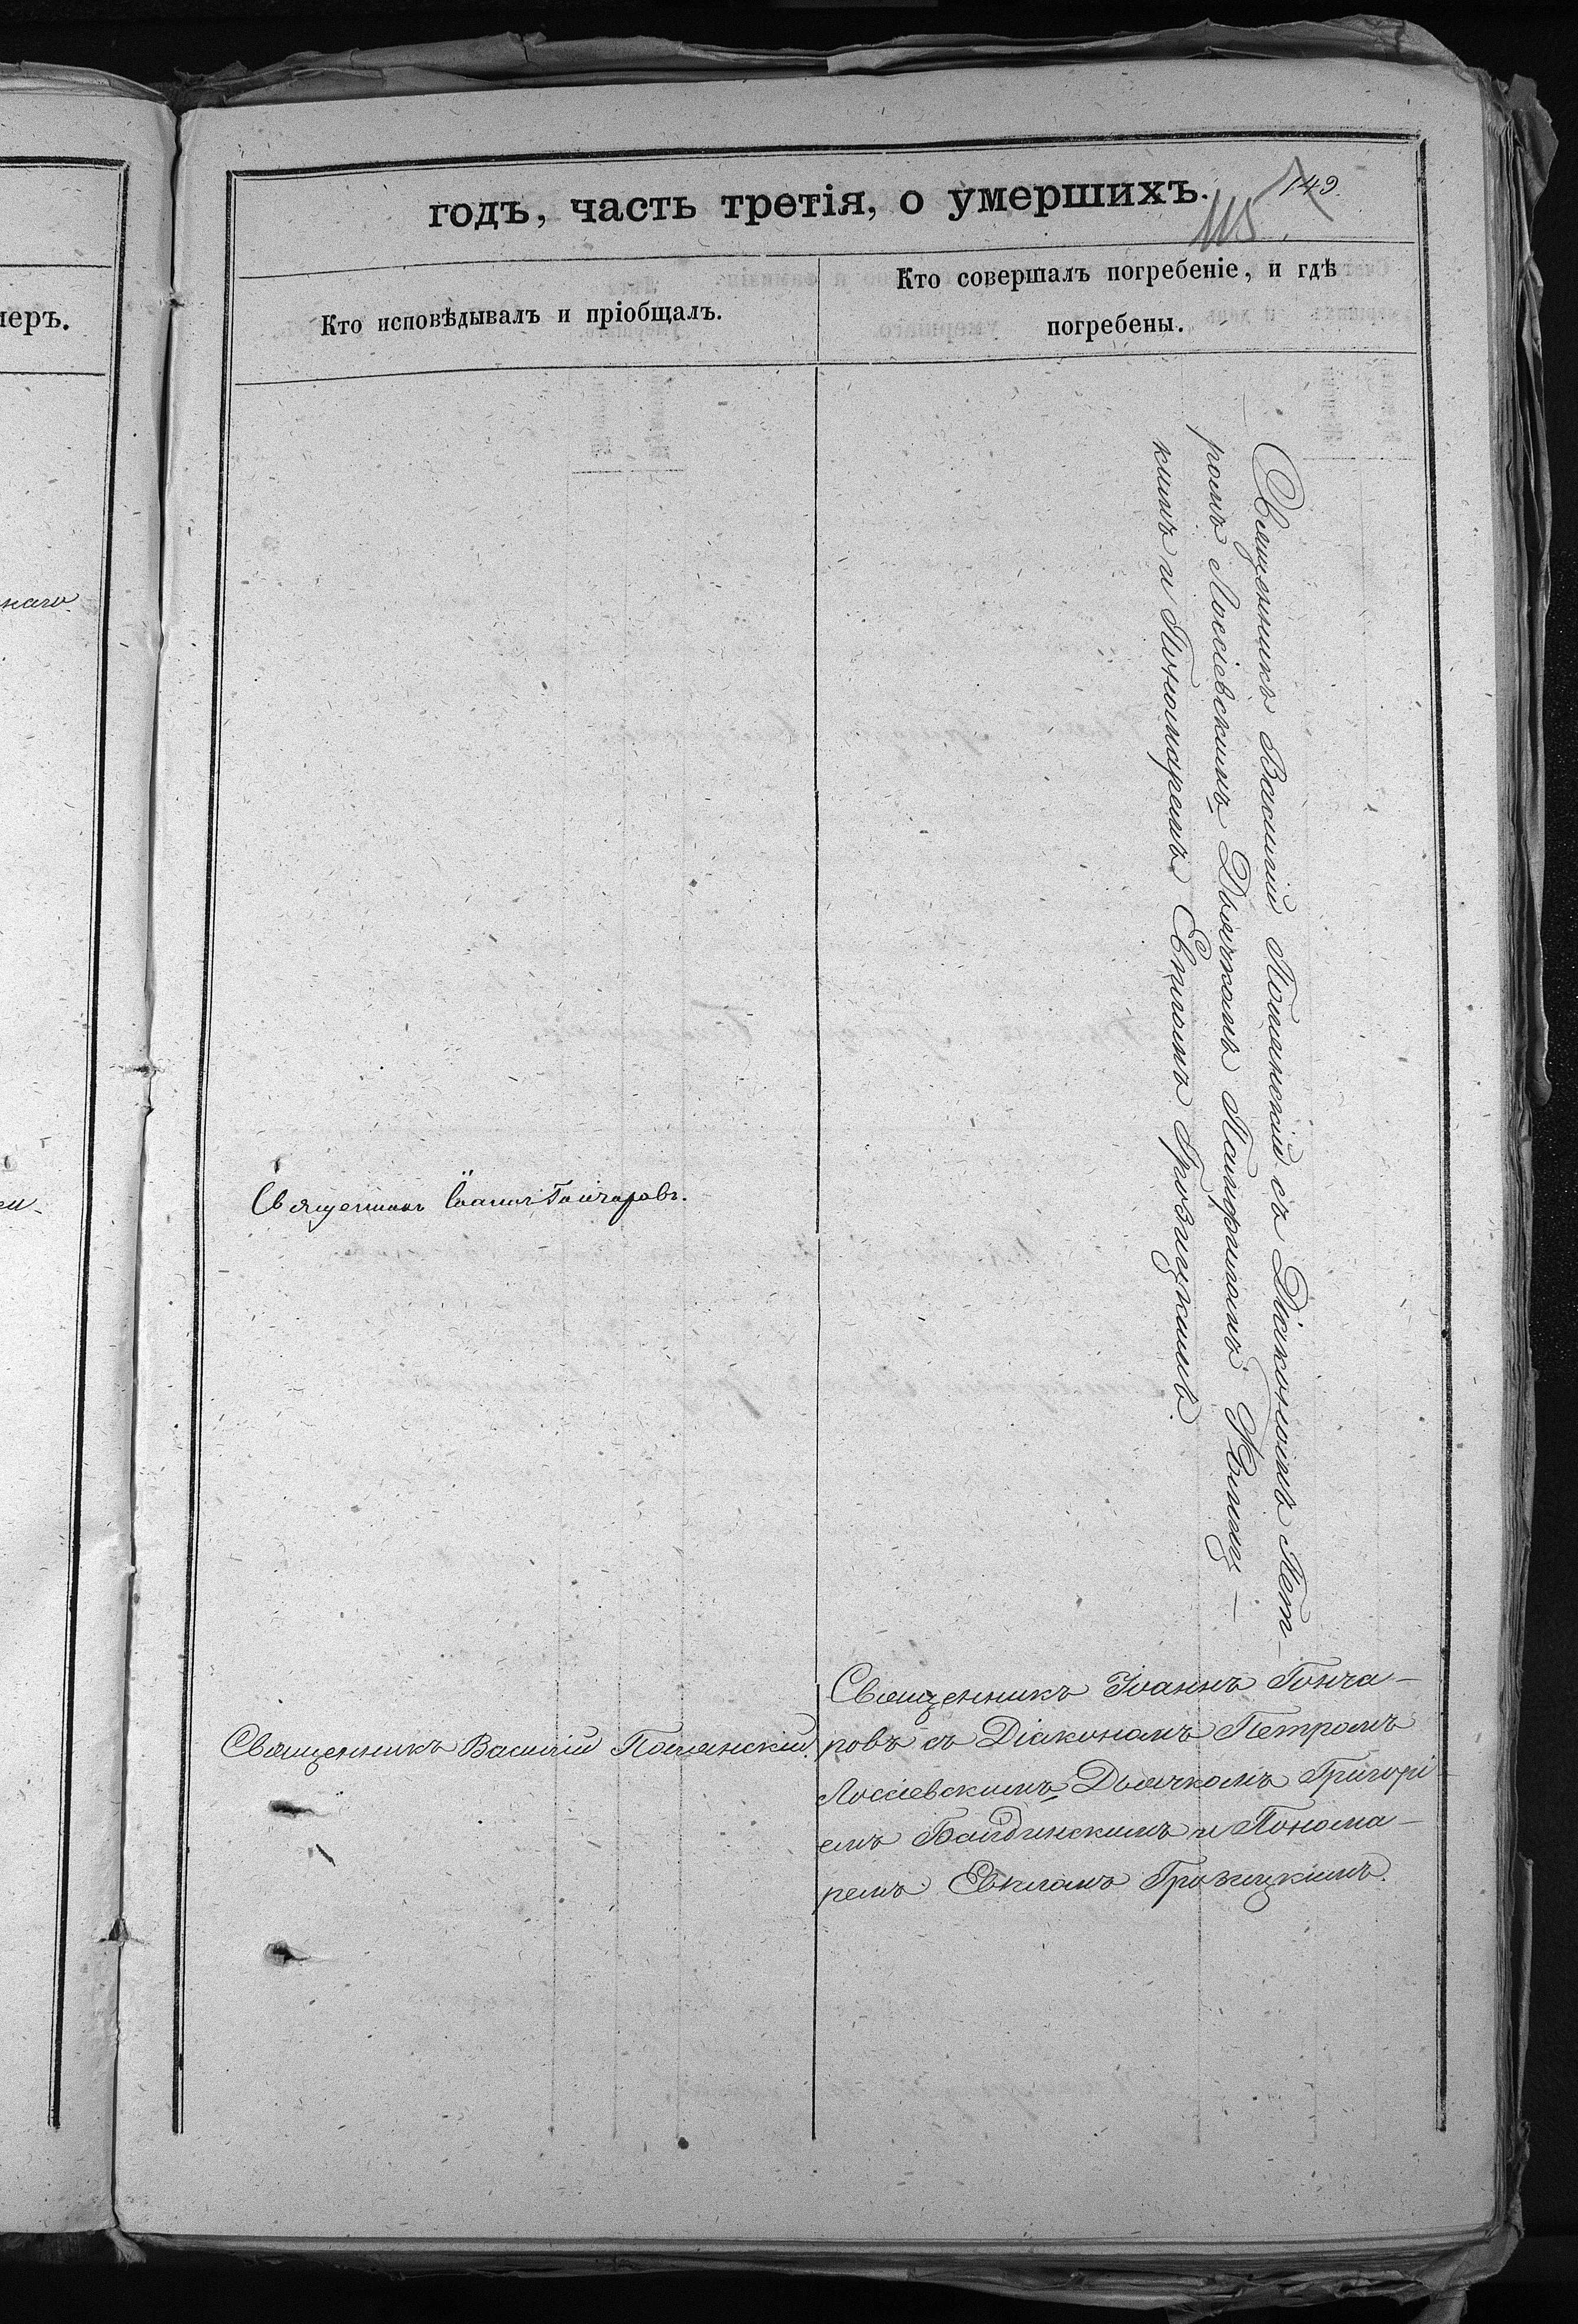 меръ.
наго
годъ, часть третія, о умершихъ.
149.
115
Кто исповѣдывалъ и пріобщалъ.
Кто совершалъ погребеніе, и гдѣ
погребены.
Священникъ Василій Полянскій съ Діакономъ Пет-
ромъ Лоссіевскимъ, Дьячкомъ Памфиломъ
кимъ и Пономаремъ Евкломъ Грозицкимъ.
Священникъ Іоаннъ Гончаровъ.
Священникъ Василій Полянскій.
Священникъ Іоаннъ Гонча-
ровъ съ Діакономъ Петромъ
Лоссіевскимъ, Дьячкомъ Григорі-
емъ Байдинскимъ и Понома-
ремъ Евкломъ Грозицкимъ.